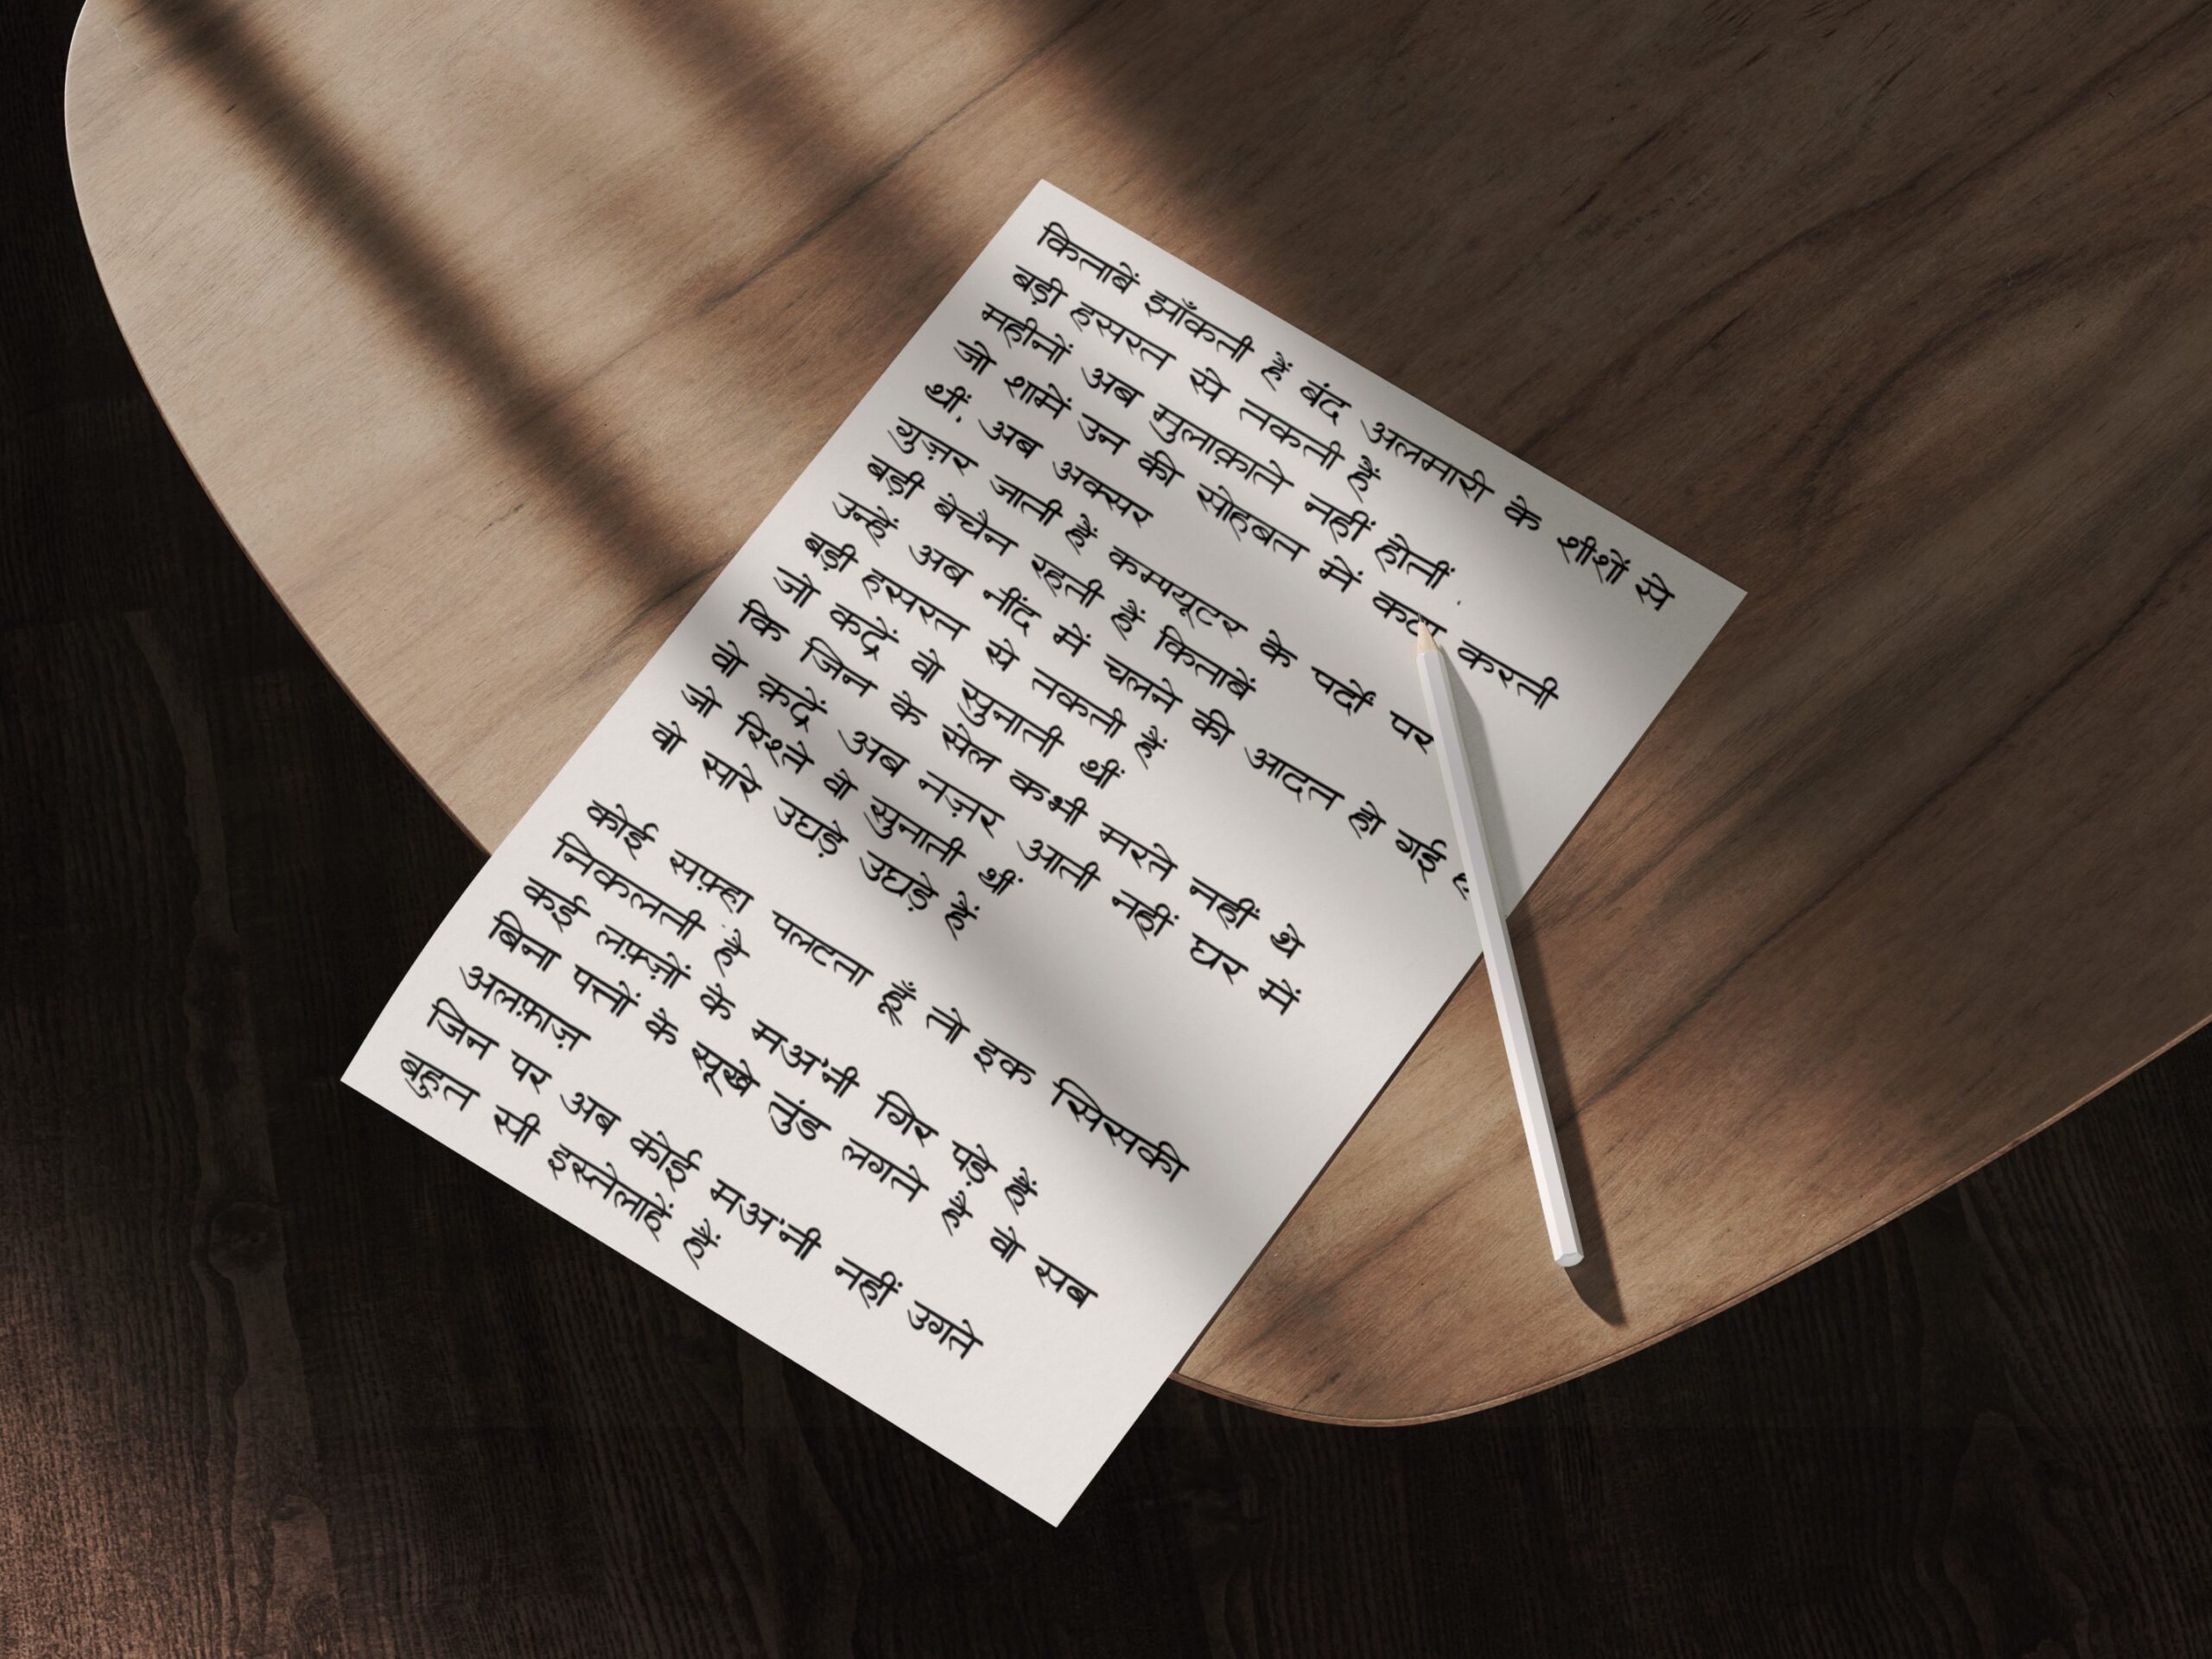 किताबें झाँकती हैं बंद अलमारी के शीशों से
बड़ी हसरत से तकती हैं
महीनों अब मुलाक़ाते नहीं होतीं
जो शामें उन की सोहबत में कटा करती
थीं, अब अक्सर
गुज़र जाती हैं कम्प्यूटर के पर्दों पर
बड़ी बेचैन रहती हैं किताबें
उन्हें अब नींद में चलने की आदत हो गई
बड़ी हसरत से तकती हैं
जो कद्रें वो सुनाती थीं
कि जिन के सेल कभी मरते नहीं थे
वो क़द्रें अब नज़र आती नहीं घर में
जो रिश्ते वो सुनाती थीं
वो सारे उघड़े उघड़े हैं
कोई सफ़्हा पलटता हूँ तो इक सिसकी
निकलती है
कई लफ़्ज़ों के मअ'नी गिर पड़े हैं
बिना पत्तों के सूखे तुंड लगते हैं वो सब
अलफ़ाज़
जिन पर अब कोई मअ'नी नहीं उगते
बहुत सी इस्तेलाहें हैं